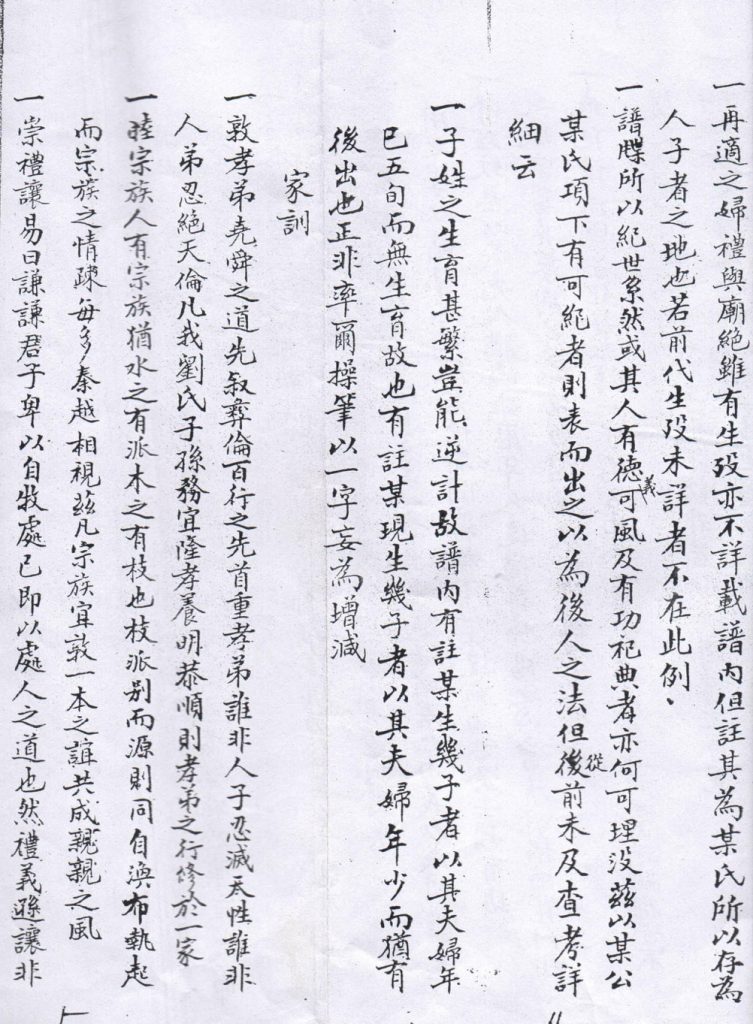 一再適之婦禮與廟絕雖有生歿亦不詳載譜內但註其為某氏所以存為
人子者之地也若前代生歿未詳者不在此例、
一譜牒所以紀世系然或其人有德義可風及有功祀典者亦何可埋没茲以某公
某氏項下有可紀者則表而出之以為後人之法但從後前未及查考詳
細云
一子姓之生育甚繁豈能逆計故譜內有註某生幾子者以其夫婦年
已五旬而無生育故也有註某現生幾子者以其夫婦年少而猶有
後出也正非率爾操筆以一字妄為增減
家訓
一敦孝弟堯舜之道先敘彝倫百行之先首重孝弟誰非人子忍滅天性誰非
人弟忍絕天倫凡我劉氏子孫務宜隆孝養明恭順則孝弟之行修於一家
一睦宗族人有宗族猶水之有派木之有枝也枝派别而源則同自渙布執起
而宗族之情疎每多秦越相視茲凡宗族宜敦一本之誼共成親親之風
一崇禮讓易曰謙謙君子卑以自牧處已即以處人之道也然禮義遜讓非